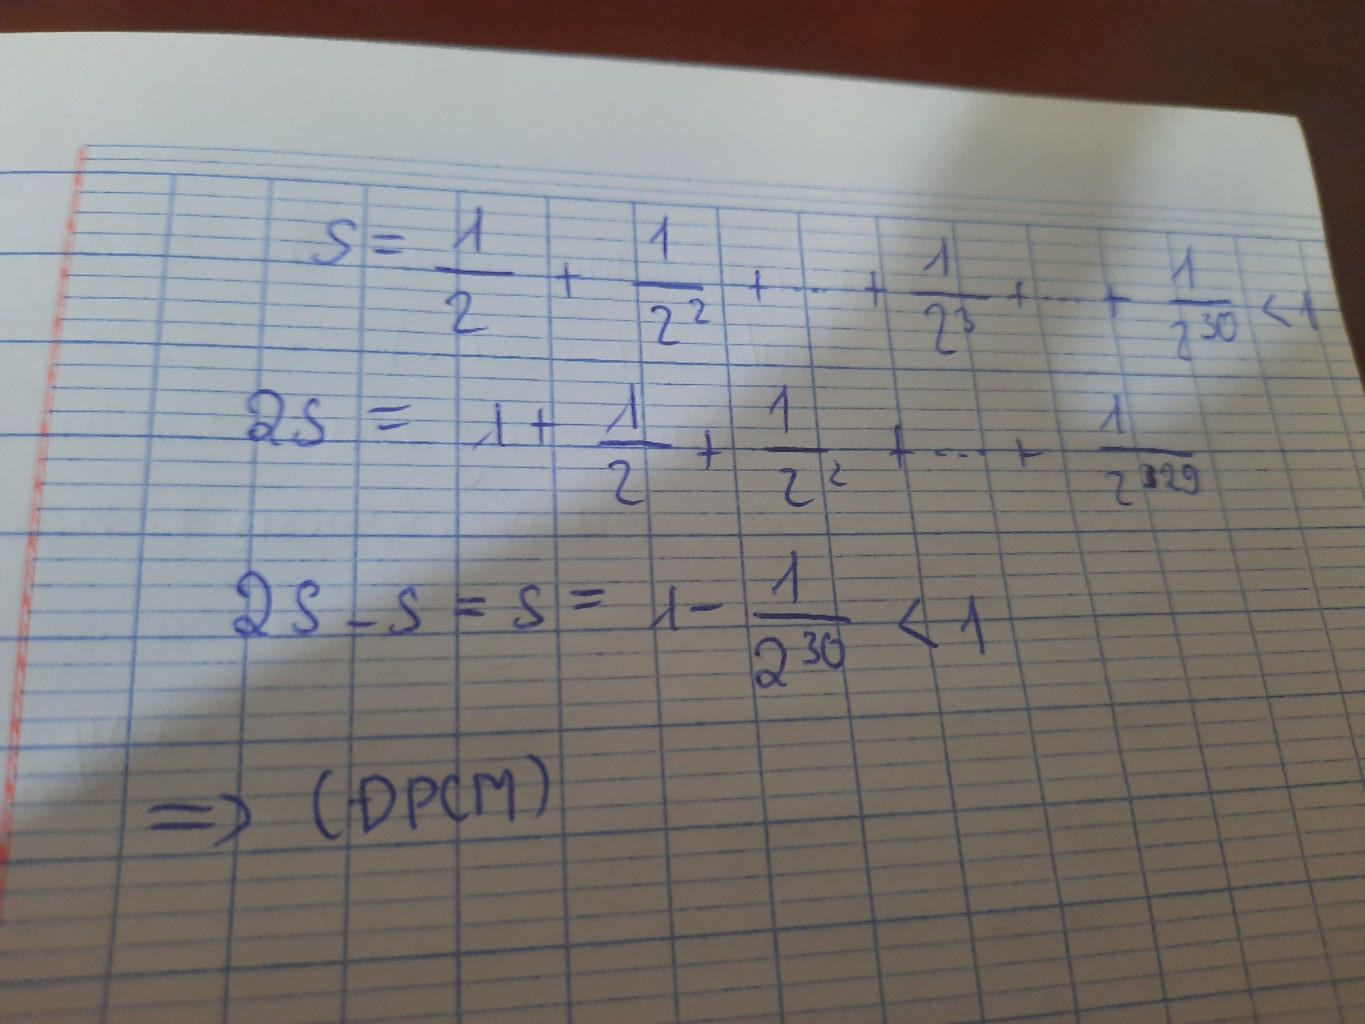 S = 1/2 + 1/2² + ... + 1/2³ + ... + 1/2³⁰ < 1
2S = 1 + 1/2 + 1/2² + ... + 1/2²⁹
2S - S = S = 1 - 1/2³⁰ < 1
=> (ĐPCM)